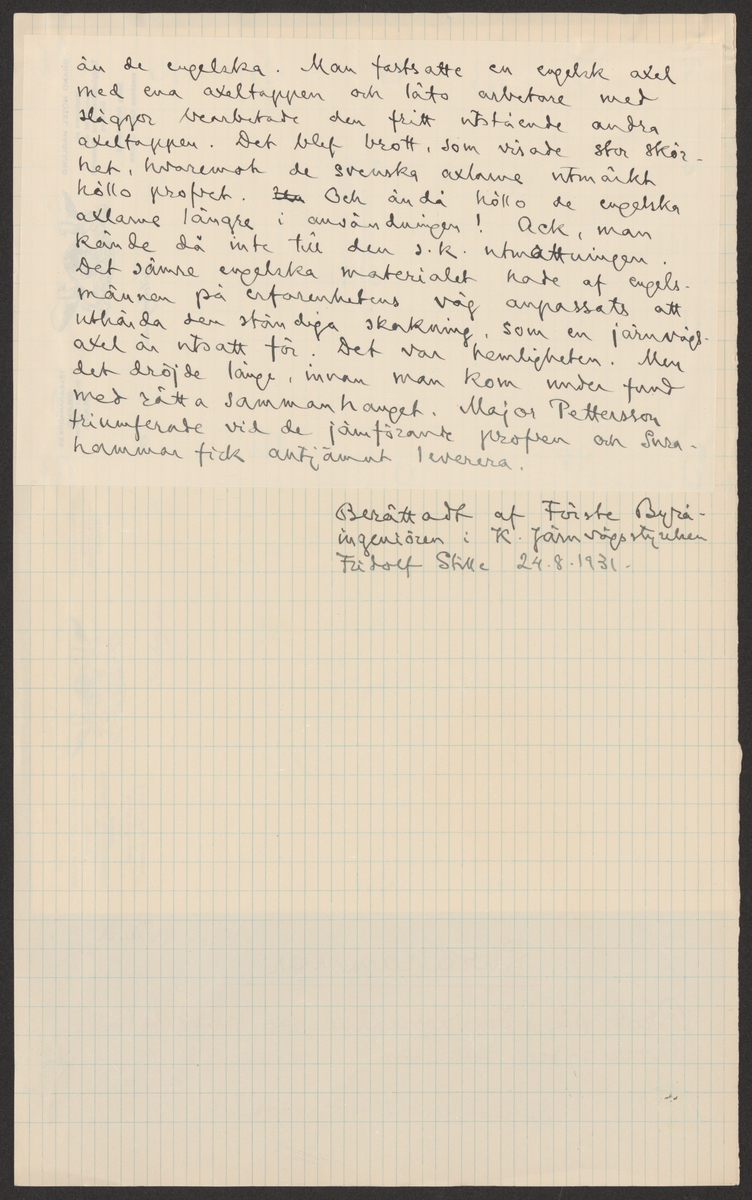 än de engelska. Man fastsatte en engelsk axel
med ena axeltappen och läto arbetare med
släggor bearbetade den fritt utstående andra
axeltappen. Det blef brott, som visade stor skör-
het, hvaremot de svenska axlarne utmärkt
höllo profvet. Och ändå höllo de engelska
axlarne längre i användningen! Ack, man
kände då inte till den s.k. utmattningen.
Det sämre engelska materialet hade af engels-
männen på erfarenhetens väg anpassats att
uthärda den ständiga skakning, som en järnvägs-
axel är utsatt för. Det var hemligheten. Men
det dröjde länge, innan man kom under fund
med rätta sammanhanget. Major Pettersson
triumferade vid de jämförande profven och Sura-
hammar fick antjämnt leverera.
Berättadt af Förste Byrå-
ingeniören i K. Järnvägsstyrelsen
Fridolf Stille 24.8.1931.